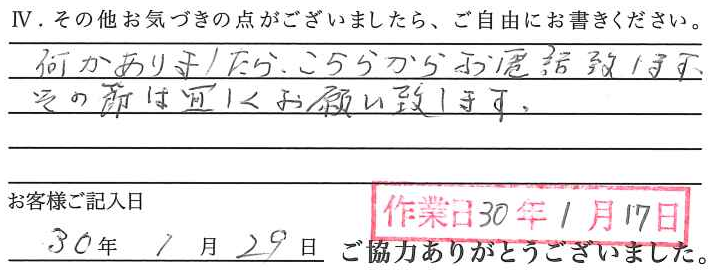 Ⅳ．その他お気づきの点がございましたら、ご自由にお書きください。
何かありましたら、こちらからお電話致します、
その節は宜しくお願い致します。
お客様ご記入日
作業日30年1月17日
30年 1月 29日 ご協力ありがとうございました。